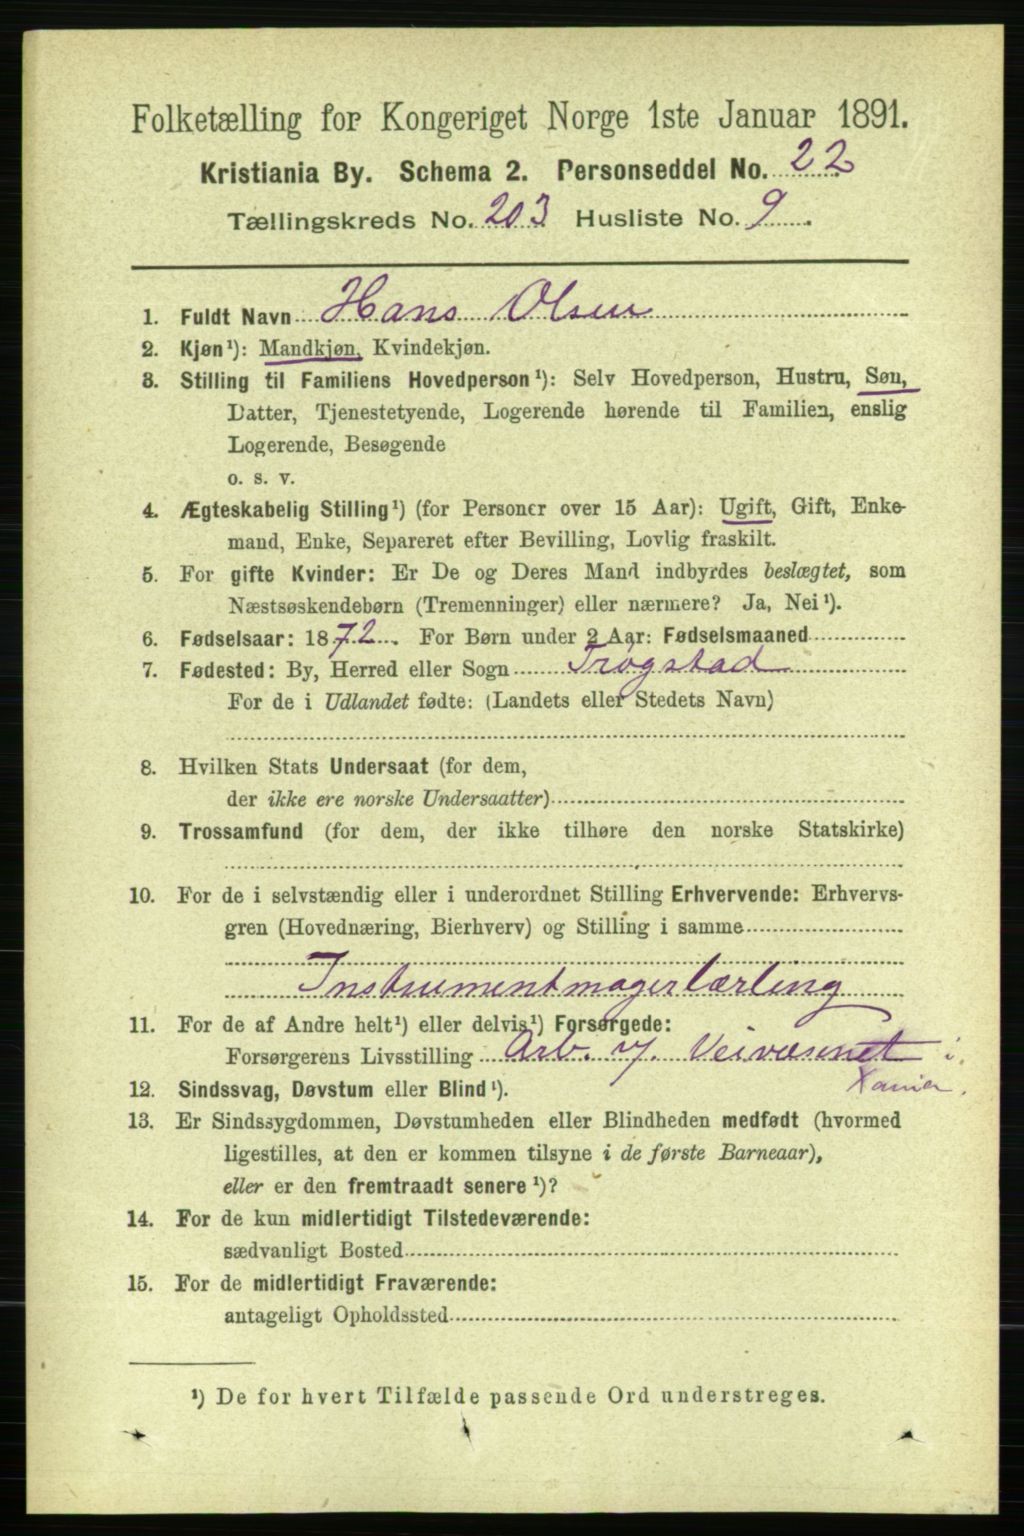 Folketælling for Kongeriget Norge 1ste Januar 1891.
Kristiania By. Schema 2. Personseddel No. 22
Tællingskreds No. 203 Husliste No. 9
1. Fuldt Navn Hans Olsen
2. Kjøn¹): Mandkjøn, Kvindekjøn.
3. Stilling til Familiens Hovedperson¹): Selv Hovedperson, Hustru, Søn,
Datter, Tjenestetyende, Logerende hørende til Familien, enslig
Logerende, Besøgende
o. s. v.
4. Ægteskabelig Stilling¹) (for Personer over 15 Aar): Ugift, Gift, Enke-
mand, Enke, Separeret efter Bevilling, Lovlig fraskilt.
5. For gifte Kvinder: Er De og Deres Mand indbyrdes beslægtet, som
Næstsøskendebørn (Tremenninger) eller nærmere? Ja, Nei¹).
6. Fødselsaar: 1872. For Børn under 2 Aar: Fødselsmaaned
7. Fødested: By, Herred eller Sogn Trøgstad
For de i Udlandet fødte: (Landets eller Stedets Navn)
8. Hvilken Stats Undersaat (for dem,
der ikke ere norske Undersaatter)
9. Trossamfund (for dem, der ikke tilhøre den norske Statskirke)
10. For de i selvstændig eller i underordnet Stilling Erhvervende: Erhvervs-
gren (Hovednæring, Bierhverv) og Stilling i samme
Instrumentmagerlærling
11. For de af Andre helt¹) eller delvis¹) Forsørgede:
Forsørgerens Livsstilling Arb. v. Veivæsenet i
Xania.
12. Sindssvag, Døvstum eller Blind¹).
13. Er Sindssygdommen, Døvstumheden eller Blindheden medfødt (hvormed
ligestilles, at den er kommen tilsyne i de første Barneaar),
eller er den fremtraadt senere¹)?
14. For de kun midlertidigt Tilstedeværende:
sædvanligt Bosted
15. For de midlertidigt Fraværende:
antageligt Opholdssted
¹) De for hvert Tilfælde passende Ord understreges.